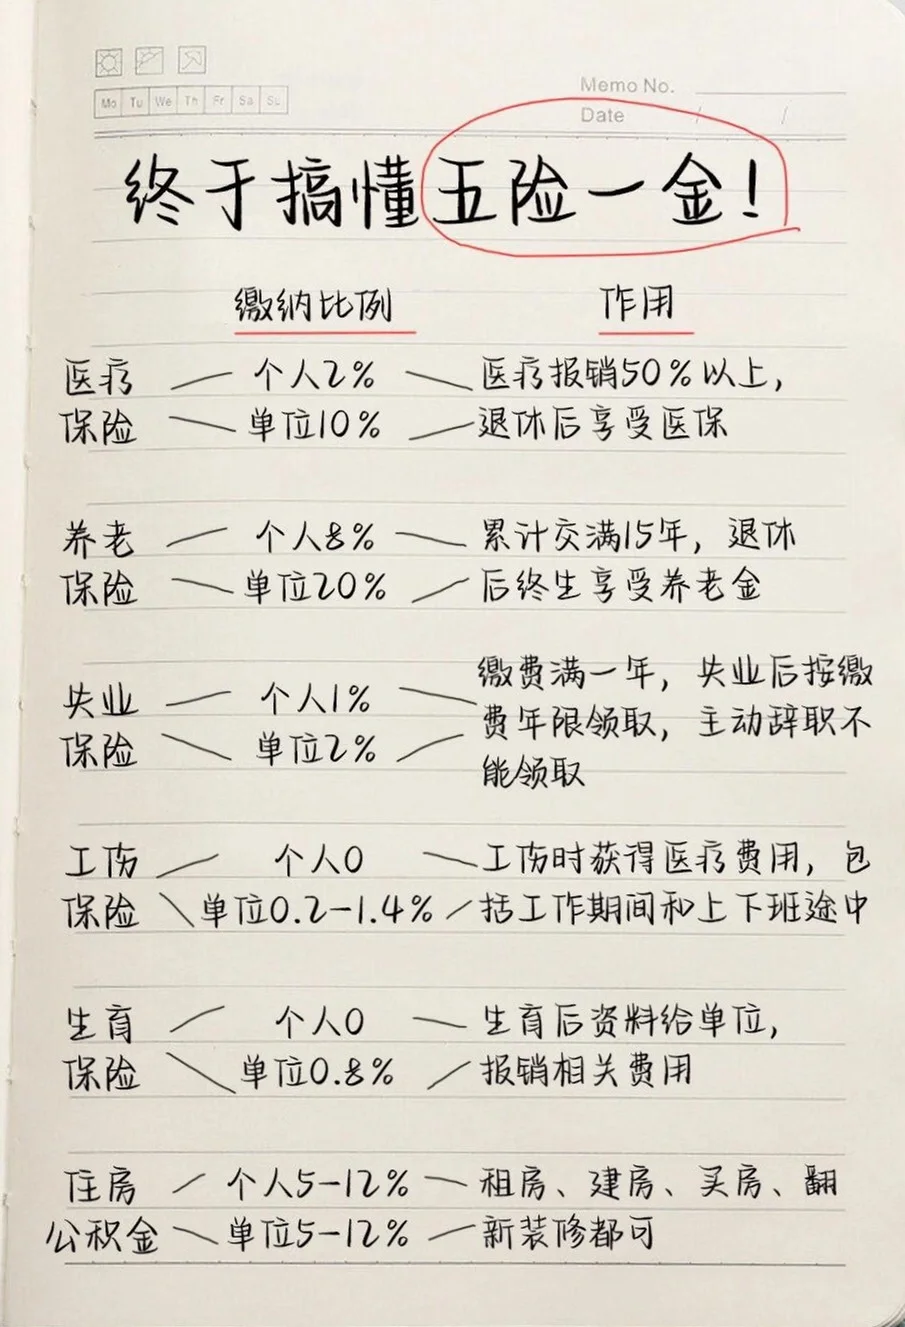 Mo Tu We Th Fr Sa Su
Memo No.
Date / /
终于搞懂五险一金!
缴纳比例 作用
医疗 个人2% 医疗报销50%以上,
保险 单位10% 退休后享受医保
养老 个人8% 累计交满15年,退休
保险 单位20% 后终生享受养老金
缴费满一年,失业后按缴
失业 个人1% 费年限领取,主动辞职不
保险 单位2% 能领取
工伤 个人0 工伤时获得医疗费用,包
保险 单位0.2-1.4% 括工作期间和上下班途中
生育 个人0 生育后资料给单位,
保险 单位0.8% 报销相关费用
住房 个人5-12% 租房、建房、买房、翻
公积金 单位5-12% 新装修都可